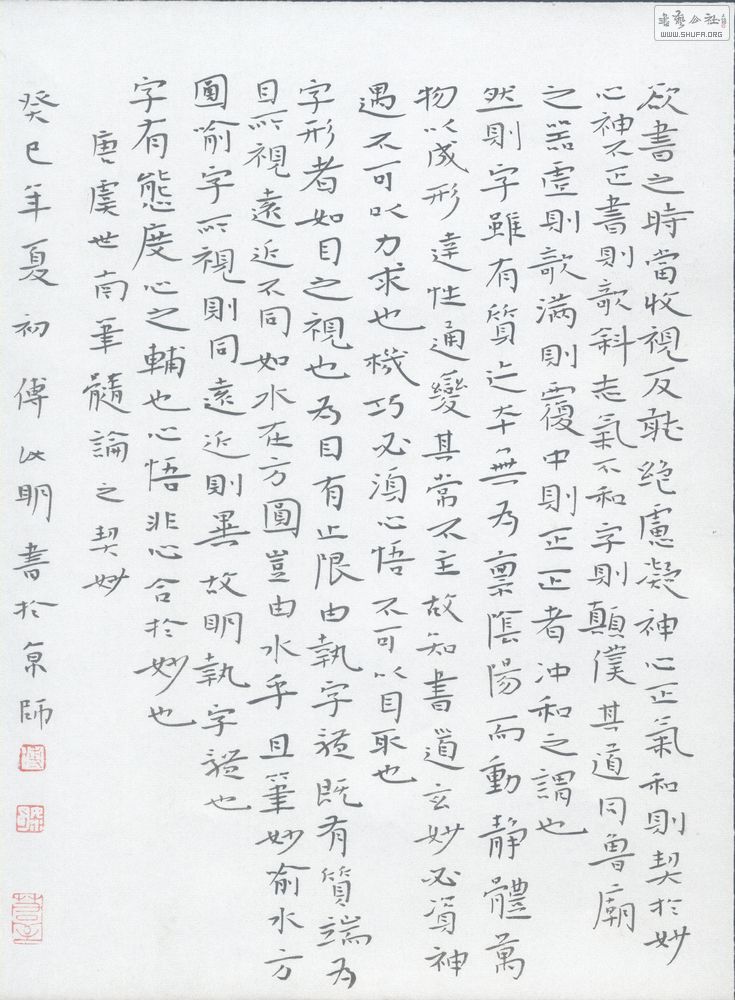 書藝公社
WWW.SHUFA.ORG
欲書之時當收視反聽絕慮凝神心正氣和則契於妙
心神不正書則欹斜志氣不和字則顛僕其道同魯廟
之器虛則欹滿則覆中則正正者沖和之謂也
然則字雖有質迹本無為稟陰陽而動靜體萬
物以成形達性通變其常不主故知書道玄妙必資神
遇不可以力求也機巧必須心悟不可以目取也
字形者如目之視也為目有止限由執字體既有質端為
目所視遠近不同如水在方圓豈由水乎且筆妙喻水方
圓喻字所視則同遠近則異故明執字體也
字有態度心之輔也心悟非心合於妙也
唐虞世南筆髓論之契妙
癸巳年夏初傅此明書於京師